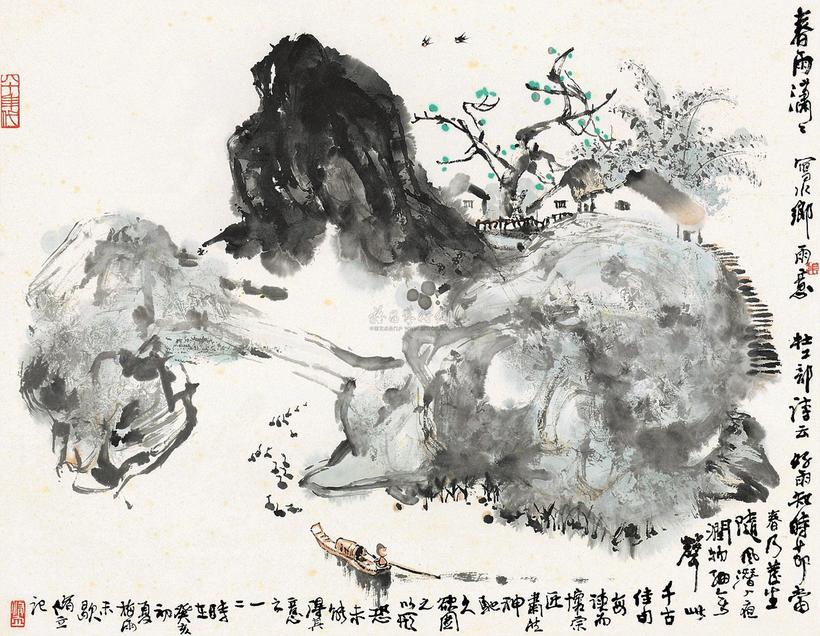 春雨瀟〻 寫水鄉雨意 杜工部詩云 好雨知時節當
春乃發生
隨風潛入夜
潤物細無
聲
此
千古
佳句
每
讀而
懷宗
匠
肅然
神
馳
久
欲圖
之
以形
恐
未能
得其
意
之
一二
時
在
癸亥
初
夏
梅雨
未
歇
記